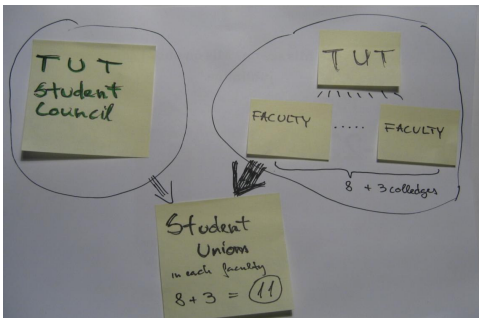 TUT
Student
Council
TUT
FACULTY ..... FACULTY
8 + 3 colledges
Student
Unions
in each faculty
8 + 3 = 11